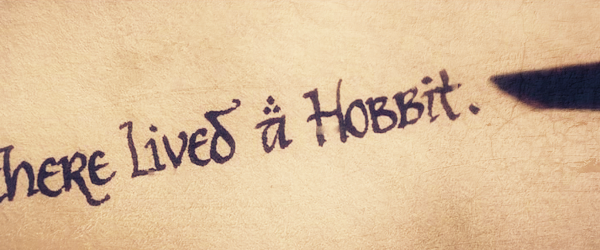 there lived a Hobbit.